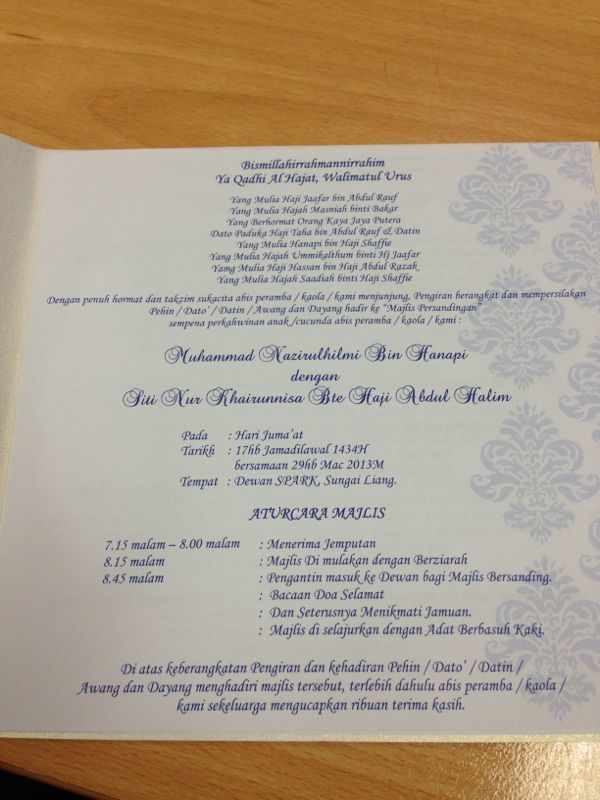 Bismillahirrahmannirrahim
Ya Qadhi Al Hajat, Walimatul Urus
Yang Mulia Haji Jaafar bin Abdul Rauf
Yang Mulia Hajah Masniah binti Bakar
Yang Berhormat Orang Kaya Jaya Putera
Dato Paduka Haji Taha bin Abdul Rauf & Datin
Yang Mulia Hanapi bin Haji Shaffie
Yang Mulia Hajah Ummikalthum binti Hj Jaafar
Yamg Mulia Haji Hassan bin Haji Abdul Razak
Yang Mulia Hajah Saadiah binti Haji Shaffie
Dengan penuh hormat dan takzim sukacita abis peramba / kaola / kami menjunjung, Pengiran berangkat dan mempersilakan
Pehin / Dato' / Datin / Awang dan Dayang hadir ke "Majlis Persandingan"
sempena perkahwinan anak /cucunda abis peramba / kaola / kami :
Muhammad Nazirulhilmi Bin Hanapi
dengan
Siti Nur Khairunnisa Bte Haji Abdul Halim
Pada : Hari Juma'at
Tarikh : 17hb Jamadilawal 1434H
bersamaan 29hb Mac 2013M
Tempat : Dewan SPARK, Sungai Liang.
ATURCARA MAJLIS
7.15 malam – 8.00 malam : Menerima Jemputan
8.15 malam : Majlis Di mulakan dengan Berziarah
8.45 malam : Pengantin masuk ke Dewan bagi Majlis Bersanding.
: Bacaan Doa Selamat
: Dan Seterusnya Menikmati Jamuan.
: Majlis di selajurkan dengan Adat Berbasuh Kaki.
Di atas keberangkatan Pengiran dan kehadiran Pehin / Dato' / Datin /
Awang dan Dayang menghadiri majlis tersebut, terlebih dahulu abis peramba / kaola /
kami sekeluarga mengucapkan ribuan terima kasih.